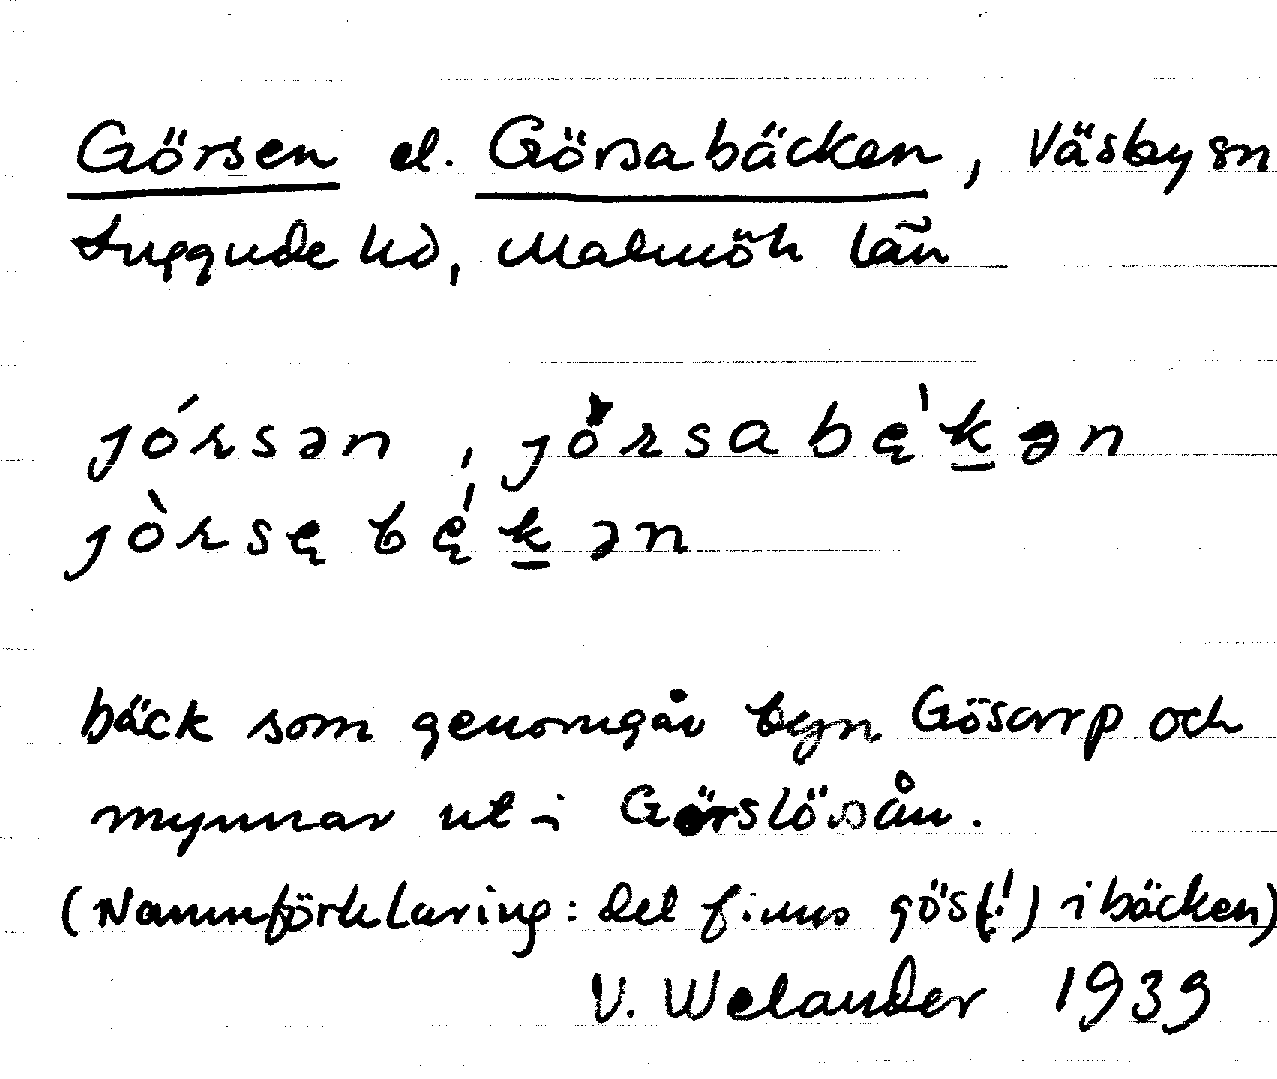 Görsen el. Görsabäcken, Väsby sn
Luggude hd, Malmöh län
jórsən, jörsabę́kən
jòrsębę́kən
bäck som genomgår byn Gösarp och
mynnar ut i Görslösån.
(Namnförklaring: det finns gös(!) i bäcken)
V. Welander 1939